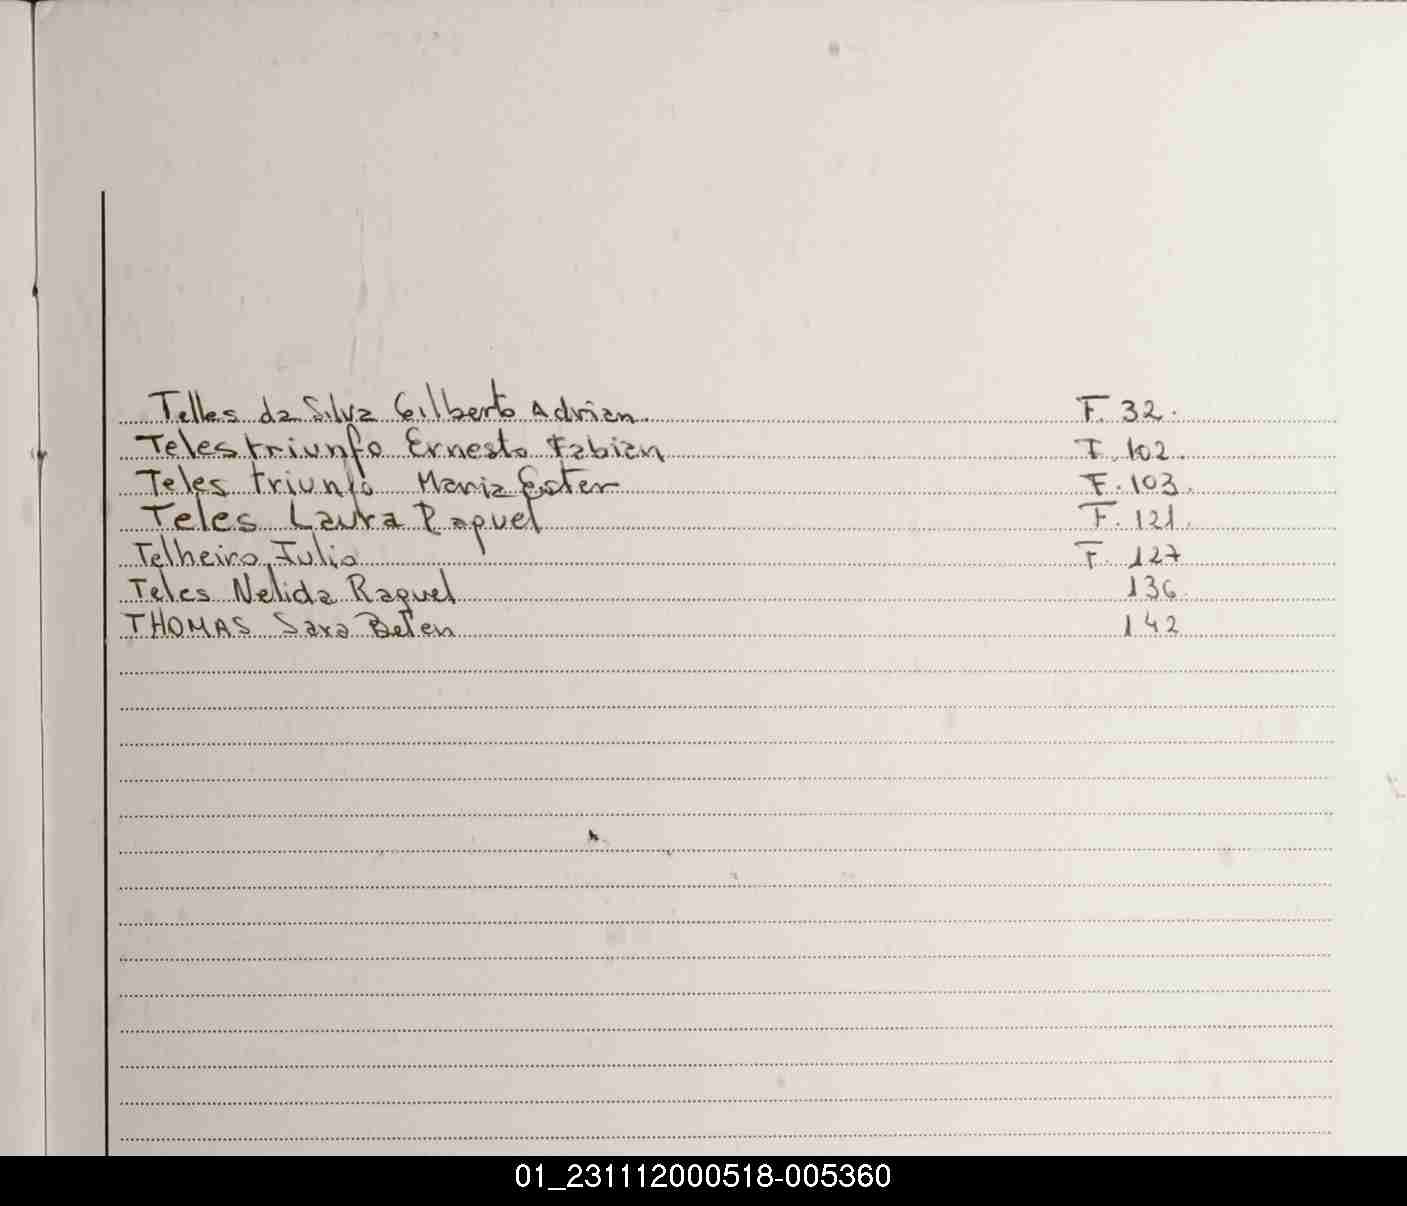 Telles da Silva Gilberto Adrian F. 32.
Teles triunfo Ernesto Fabian F. 102.
Teles triunfo Maria Ester F. 103.
Teles Laura Raquel F. 121.
Telheiro, Julio F. 127
Teles Nelida Raquel 136
THOMAS Sara Belen 142
01_231112000518-005360